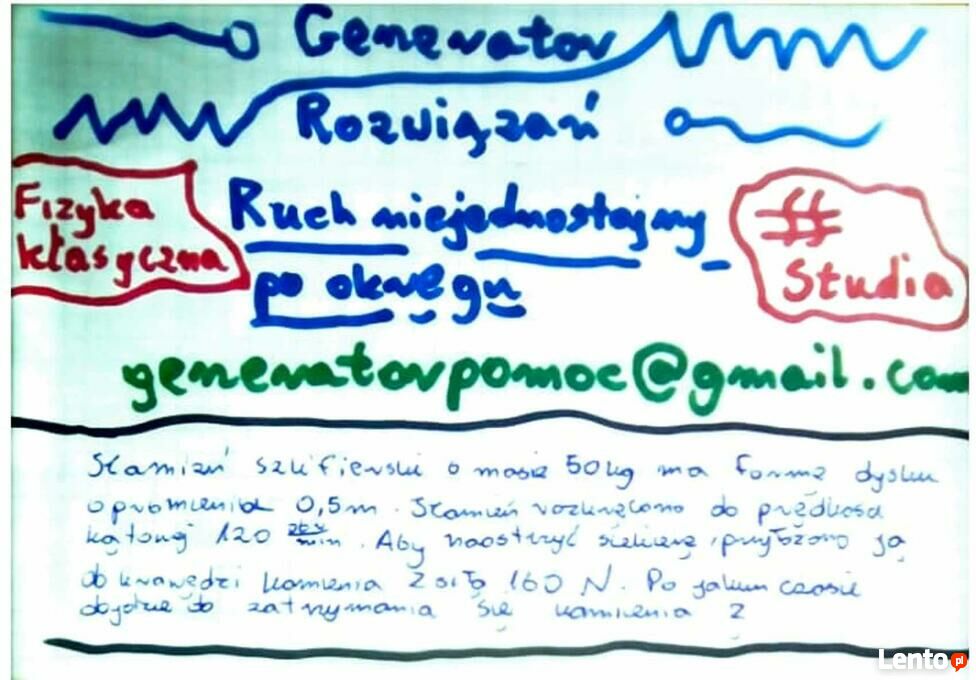 Generator
Rozwiązań
Fizyka
klasyczna
Ruch niejednostajny
po okręgu
Studia
generatorpomoc@gmail.com
Kamień szlifierski o masie 50kg ma formę dysku
o promieniu 0,5m. Kamień rozkręcono do prędkości
kątowej 120 obr/min. Aby naostrzyć siekierę, przyłożono ją
do krawędzi kamienia z siłą 160 N. Po jakim czasie
dojdzie do zatrzymania się kamienia?
Lento.pl